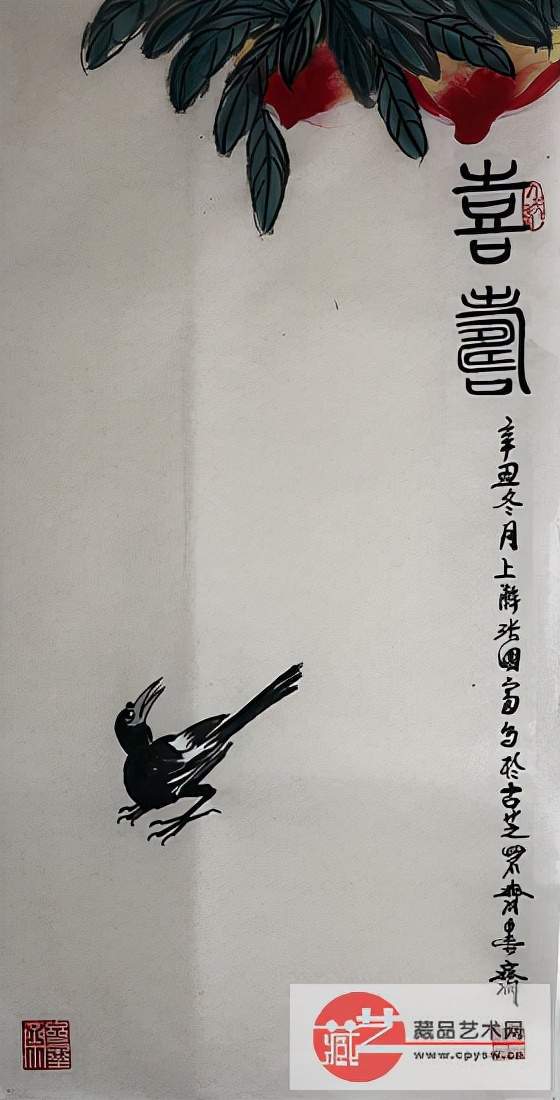 喜壽
辛丑冬月上澣张国富写於古芝罘
藏艺
藏品艺术网
www.cpysw.cn